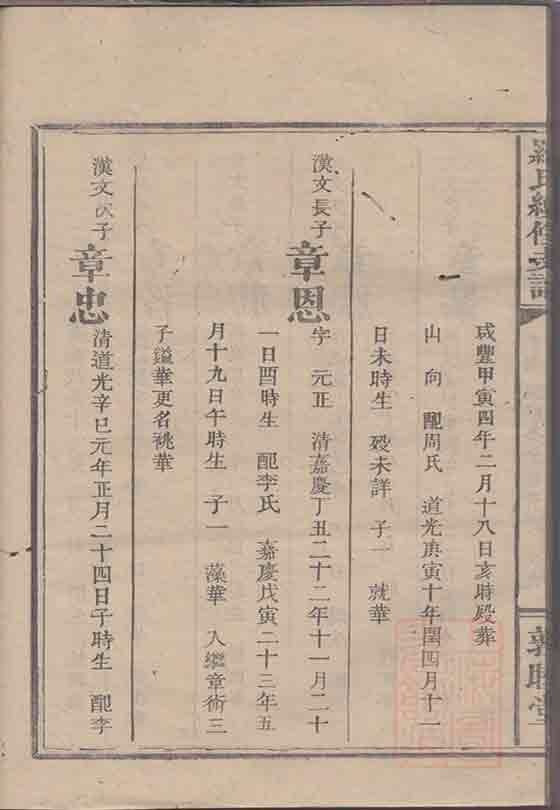 羅氏續修支譜
敦睦堂
咸豐甲寅四年二月十八日亥時歿葬
山 向 配周氏 道光庚寅十年閏四月十二
日未時生 歿未詳 子一 就華
漢文長子 章恩 字 元正 清嘉慶丁丑二十二年十一月二十
一日酉時生 配李氏 嘉慶戊寅二十三年五
月十九日午時生 子一 藻華 入繼章術三
子鎰華更名祧華
漢文次子 章忠 清道光辛巳元年正月二十四日子時生 配李